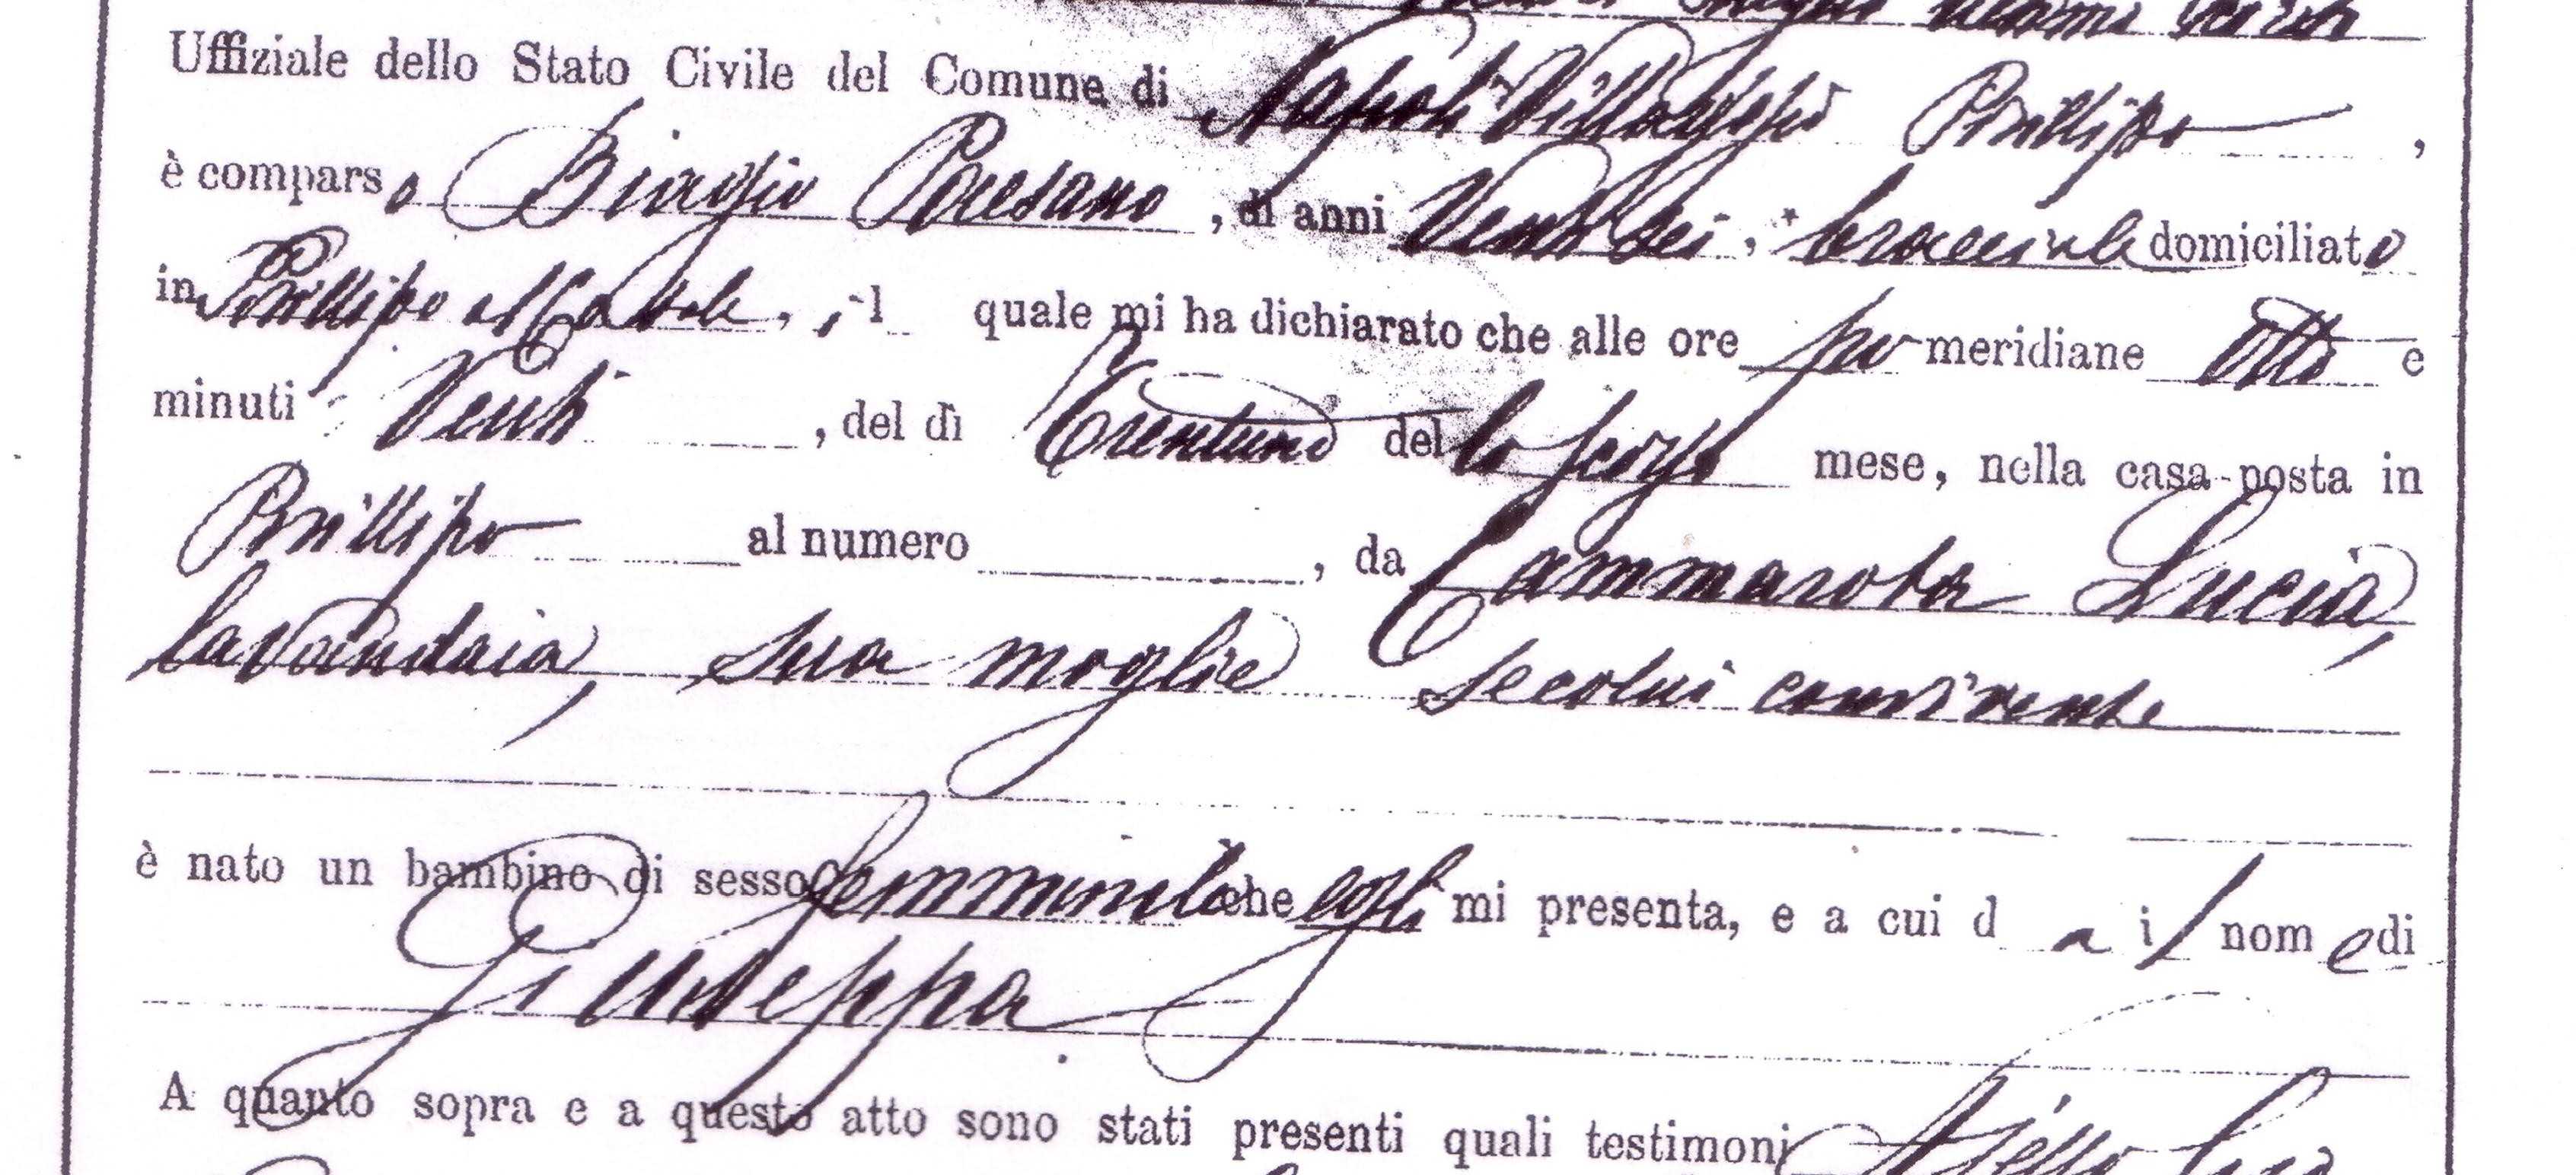 Uffiziale dello Stato Civile del Comune di Napoli Villaggio Posillipo,
è comparso Biagio Paesano, di anni Ventisei, bracciale domiciliato
in Posillipo, il quale mi ha dichiarato che alle ore pomeridiane otto e
minuti Venti, del dì Trentuno dello scorso mese, nella casa posta in
Posillipo al numero , da Cammarota Lucia,
lavandaia, sua moglie secolui convivente
è nato un bambino di sesso femminile che egli mi presenta, e a cui da il nome di
Giuseppa
A quanto sopra e a questo atto sono stati presenti quali testimoni